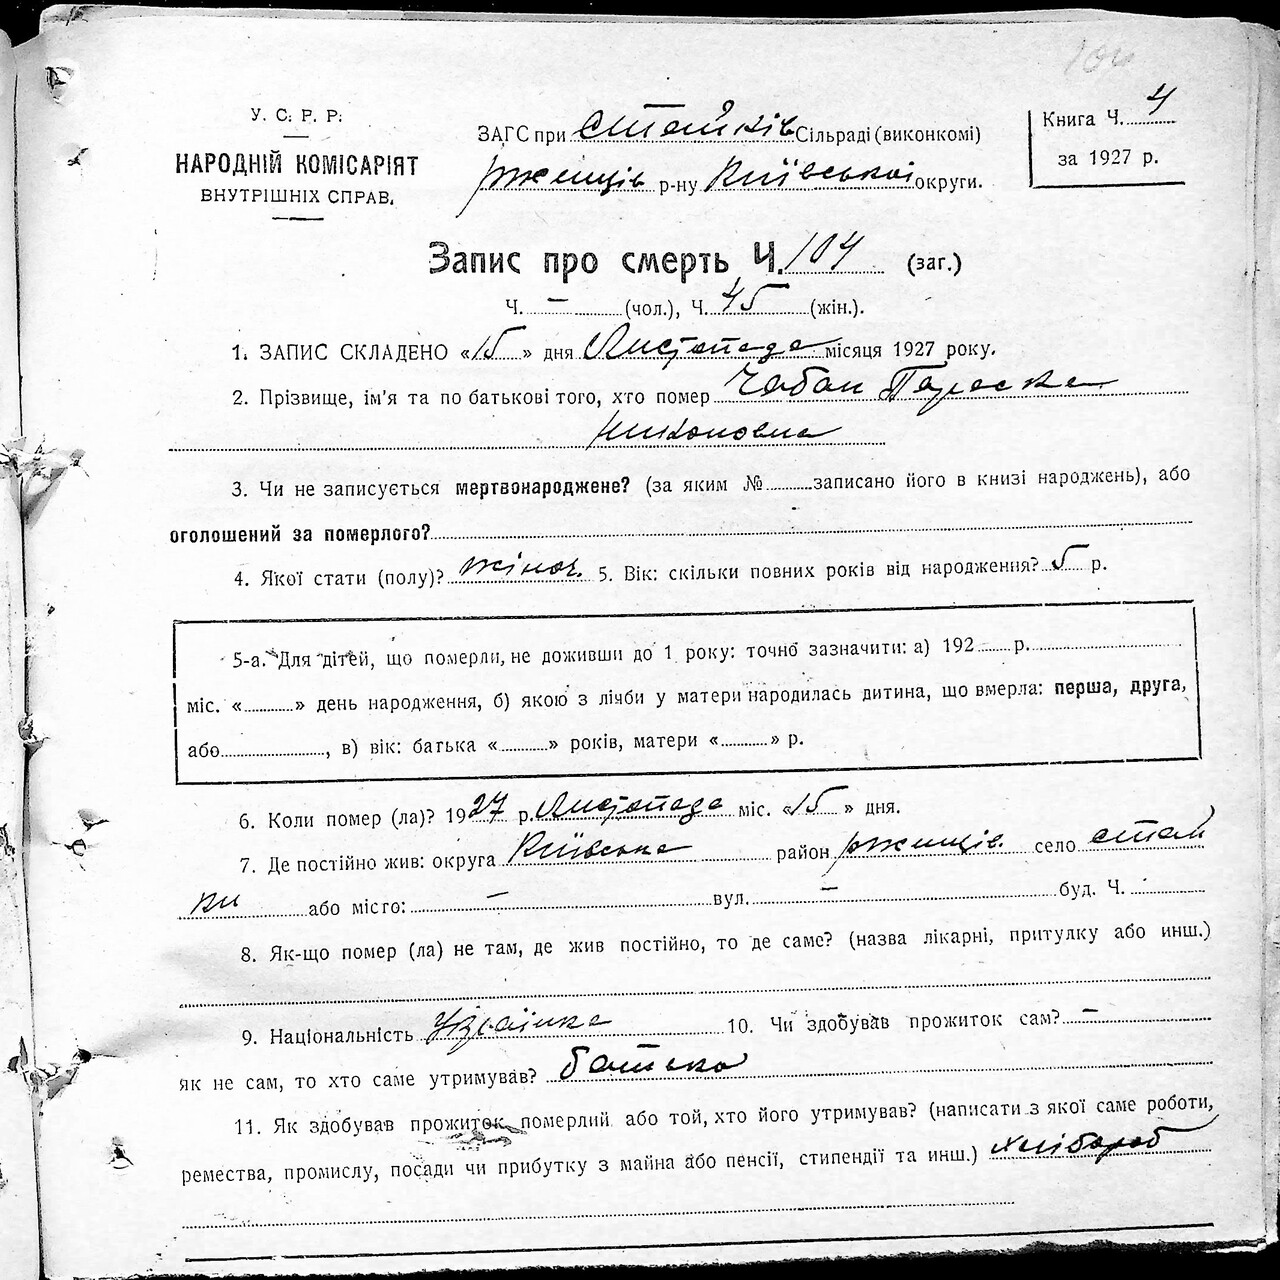 104
У. С. Р. Р.
НАРОДНІЙ КОМІСАРІЯТ
ВНУТРІШНІХ СПРАВ.
ЗАГС при Стайків Сільраді (виконкомі)
Ржищів р-ну Київської округи.
Книга Ч. 4
за 1927 р.
Запис про смерть Ч. 104 (заг.)
Ч. — (чол.), Ч. 45 (жін.).
1. ЗАПИС СКЛАДЕНО «15» дня Листопада місяця 1927 року.
2. Прізвище, ім'я та по батькові того, хто помер Чабан Параска
Никоновна
3. Чи не записується мертвонароджене? (за яким № записано його в книзі народжень), або
оголошений за померлого?
4. Якої стати (полу)? жіноч. 5. Вік: скільки повних років від народження? 5 р.
5-а. Для дітей, що померли, не доживши до 1 року: точно зазначити: а) 192 р.
міс. « » день народження, б) якою з лічби у матери народилась дитина, що вмерла: перша, друга,
або , в) вік: батька « » років, матери « » р.
6. Коли помер (ла)? 1927 р. Листопада міс. «15» дня.
7. Де постійно жив: округа Київська район Ржищів. село Стай
ки або місто: — вул. — буд. Ч.
8. Як-що помер (ла) не там, де жив постійно, то де саме? (назва лікарні, притулку або инш.)
9. Національність Українка 10. Чи здобував прожиток сам? —
як не сам, то хто саме утримував? батько
11. Як здобував прожиток померлий або той, хто його утримував? (написати з якої саме роботи,
ремества, промислу, посади чи прибутку з майна або пенсії, стипендії та инш.) хлібороб